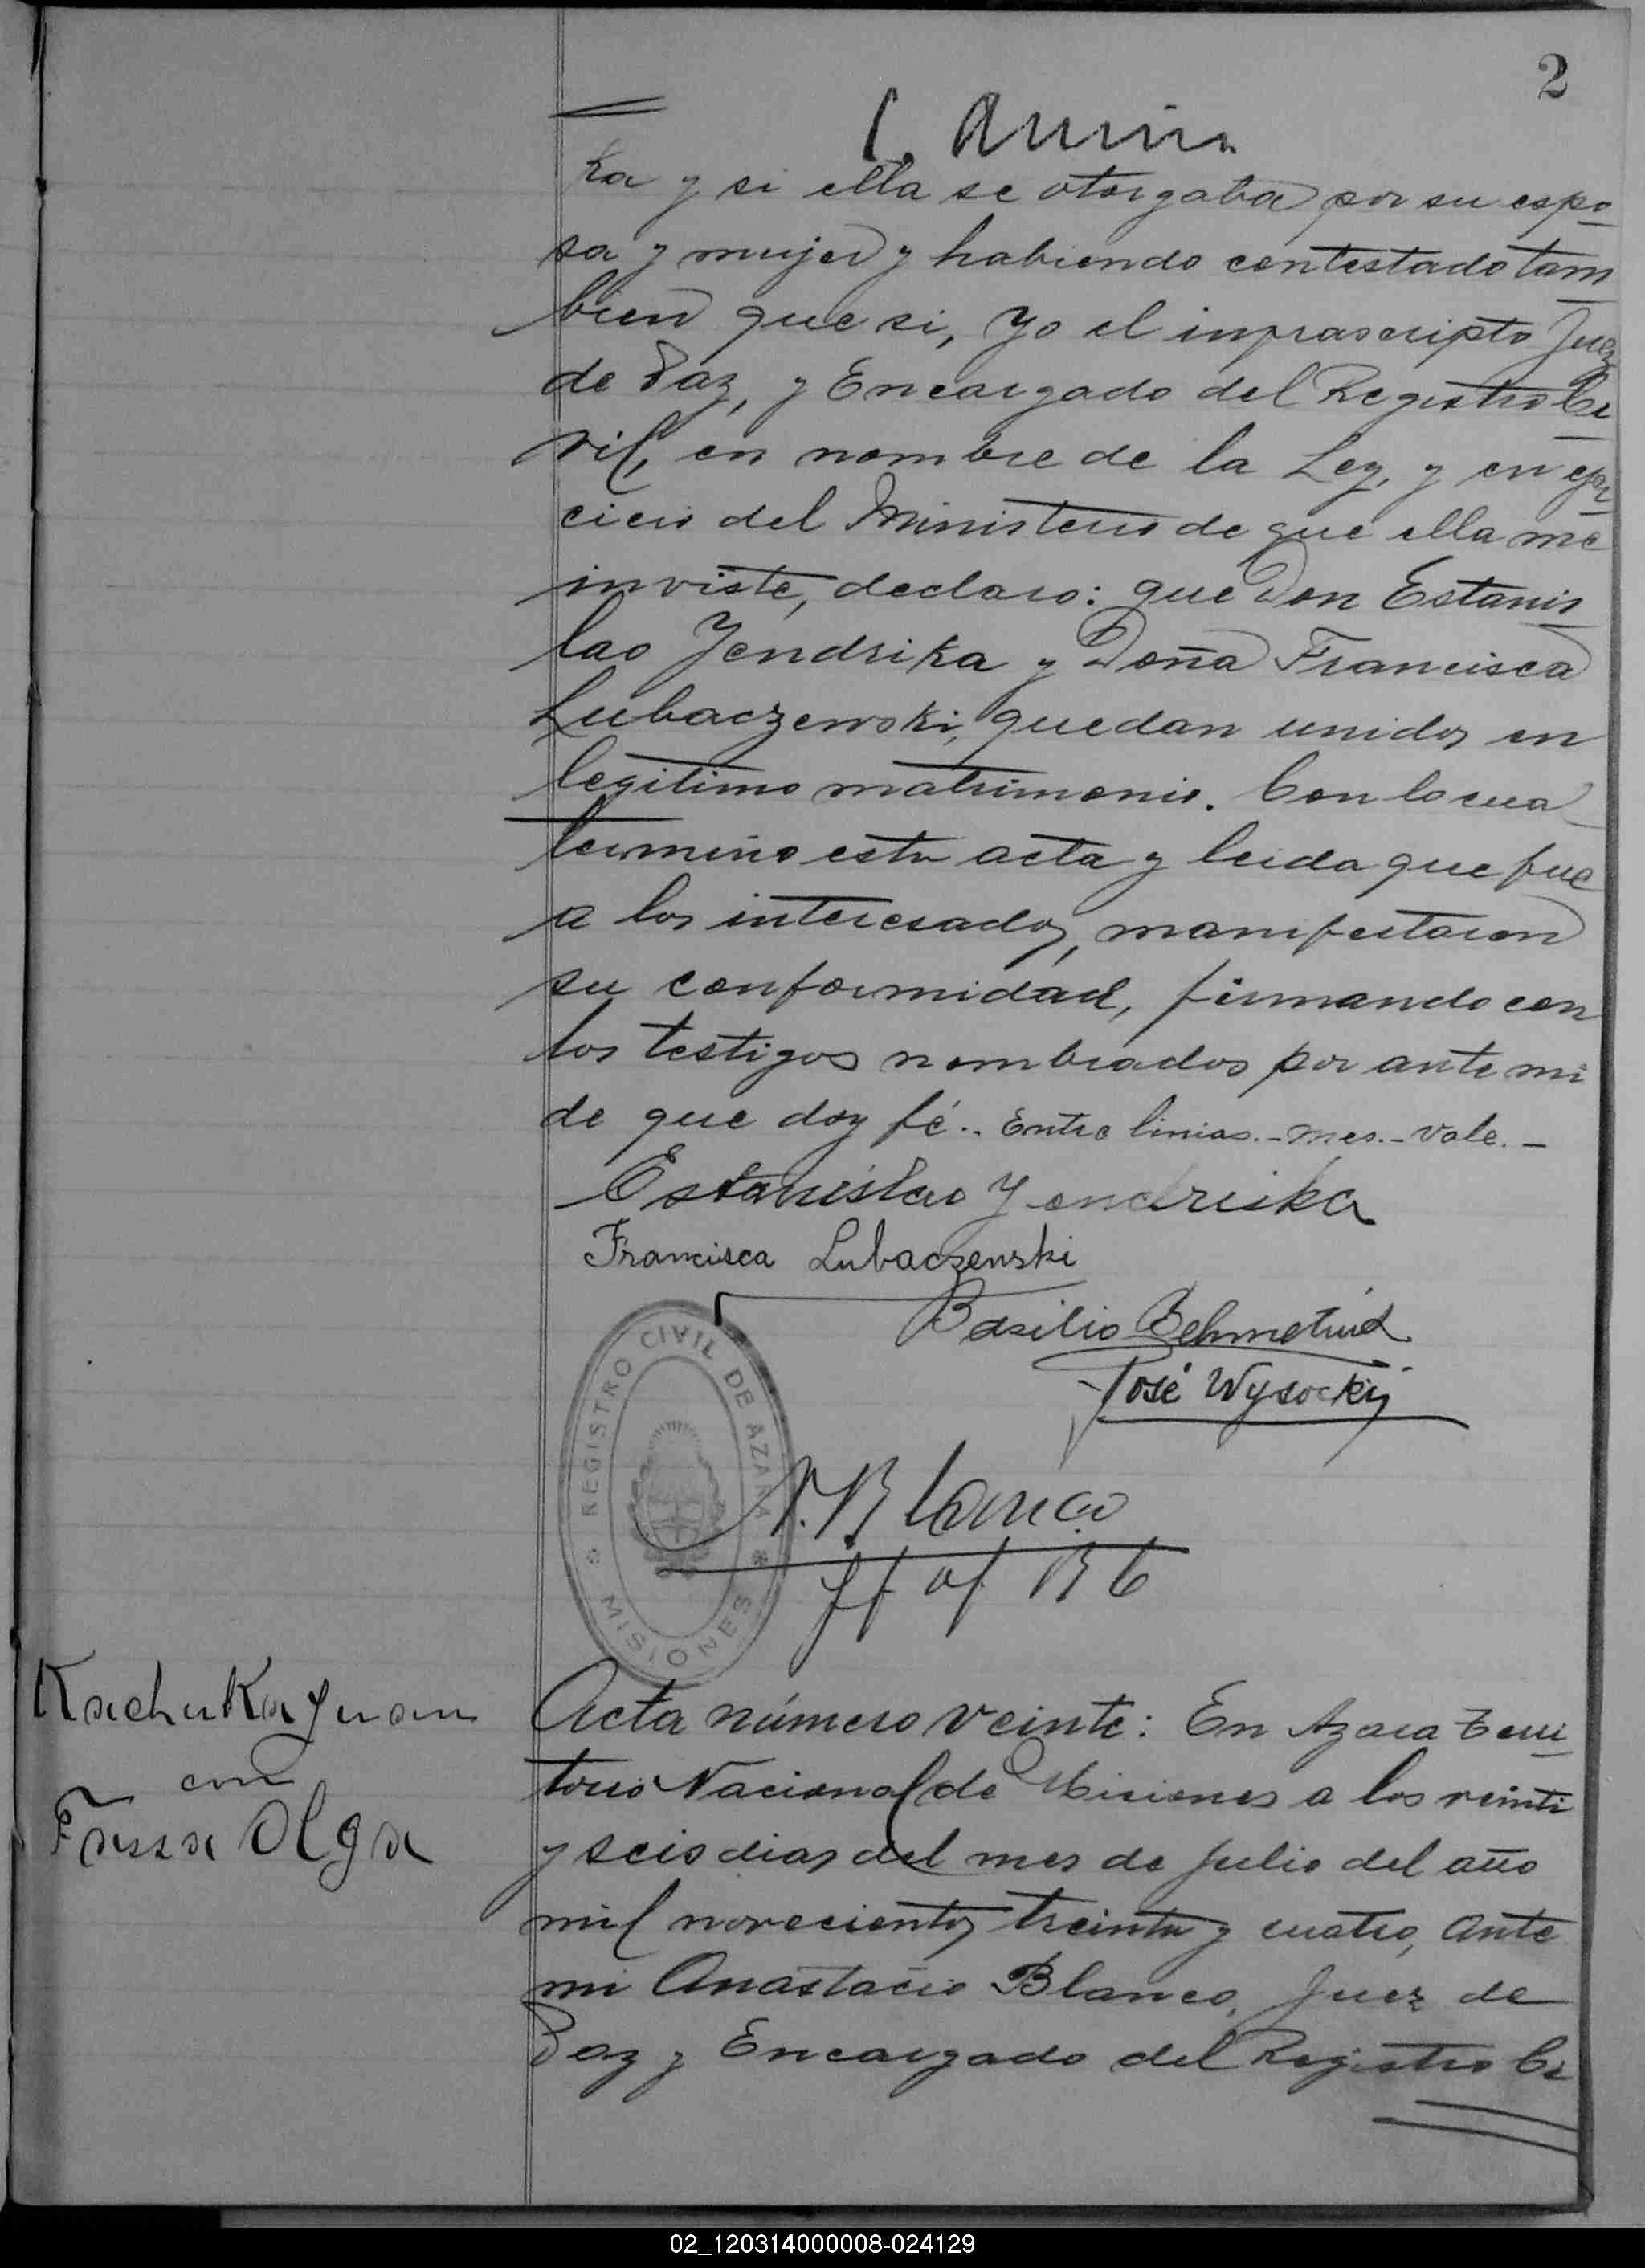 2
ka y si ella se otorgaba por su espo
sa y mujer y habiendo contestado tam
bien que si, Yo el infrascripto Juez
de Paz, y Encargado del Registro Ci
vil, en nombre de la Ley, y en ejer
cicio del Ministerio de que ella me
inviste, declaro: que Don Estanis
lao Jendrika y Doña Francisca
Lubaczewski, quedan unidos en
legitimo matrimonio. Con lo cual
termino esta acta y leida que fue
a los interesados, manifestaron
su conformidad, firmando con
los testigos nombrados por ante mi
de que doy fé.. Entre linias.- mes.- Vale.-
Estanislao Yendriska
Francisca Lubaczewski
Basilio
José Wysocki
A. Blanco
REGISTRO CIVIL DE AZARA * MISIONES
Kachuka Juan
con
Olga
Acta número veinte: En Azara Terri
torio Nacional de Misiones a los veinti
y seis dias del mes de Julio del año
mil novecientos treinta y cuatro, ante
mi Anastacio Blanco, Juez de
Paz y Encargado del Registro Ci
02_120314000008-024129